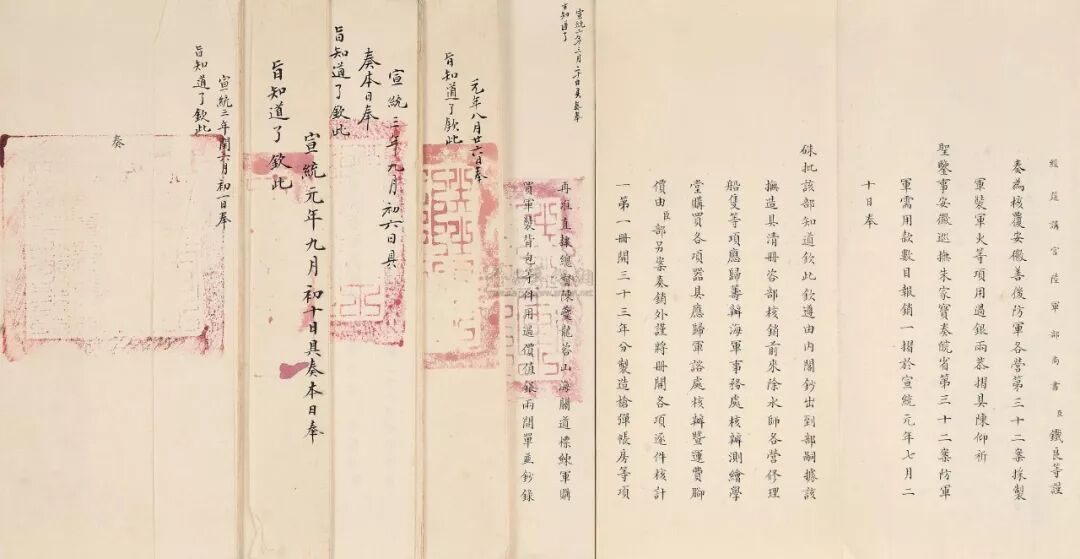 經筵講官陸軍部尚書臣鐵良等謹
奏為核覆安徽善後防軍各營第三十二案採製
軍裝軍火等項用過銀兩恭摺具陳仰祈
聖鑒事安徽巡撫朱家寶奏皖省第三十二案防軍
軍需用款數目報銷一摺於宣統元年七月二
十日奉
硃批該部知道欽此欽遵由內閣鈔出到部嗣據該
撫造具清冊咨部核銷前來除水師各營修理
船隻等項應歸籌辦海軍事務處核辦測繪學
堂購買各項器具應歸軍諮處核辦暨運費腳
價由臣部另案奏銷外謹將冊開各項逐件核計
一第一冊開三十三年分製造槍彈帳房等項
宣統元年三月二十日具奏奉
旨知道了
再准直隸總督陳夔龍咨山海關道標練軍購
買軍裝背包等件用過價值銀兩開單並鈔錄
元年八月廿六日奉
旨知道了欽此
宣統三年九月初六日具
奏本日奉
旨知道了欽此
宣統元年九月初十日具奏本日奉
旨知道了欽此
宣統三年閏六月初一日奉
旨知道了欽此
奏